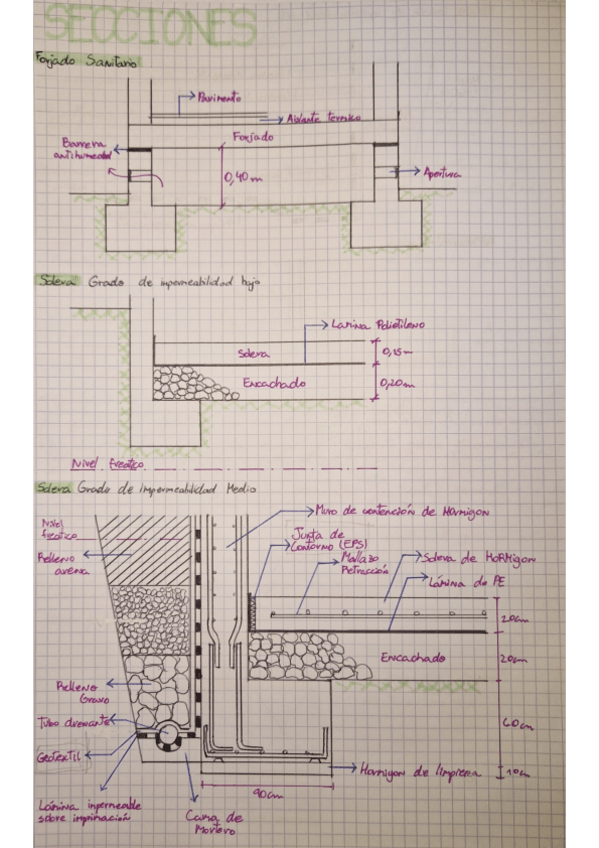 SECCIONES
Forjado Sanitario
Pavimento
Aislante térmico
Forjado
Barrera
antihumedad
0,40 m
Apertura
Solera Grado de impermeabilidad bajo
Lamina Polietileno
Solera
0,15 m
Encachado
0,20 m
Nivel freatico
Solera Grado de impermeabilidad Medio
Muro de contención de Hormigon
Nivel
freatico
Junta de
Contorno (EPS)
Mallazo
Retracción
Solera de Hormigon
Relleno
arena
Lámina de PE
20cm
Encachado
20cm
Relleno
Grava
Tubo drenante
60cm
Geotextil
Hormigon de limpieza
10cm
90cm
Lámina impermeable
sobre imprimación
Cama de
Mortero